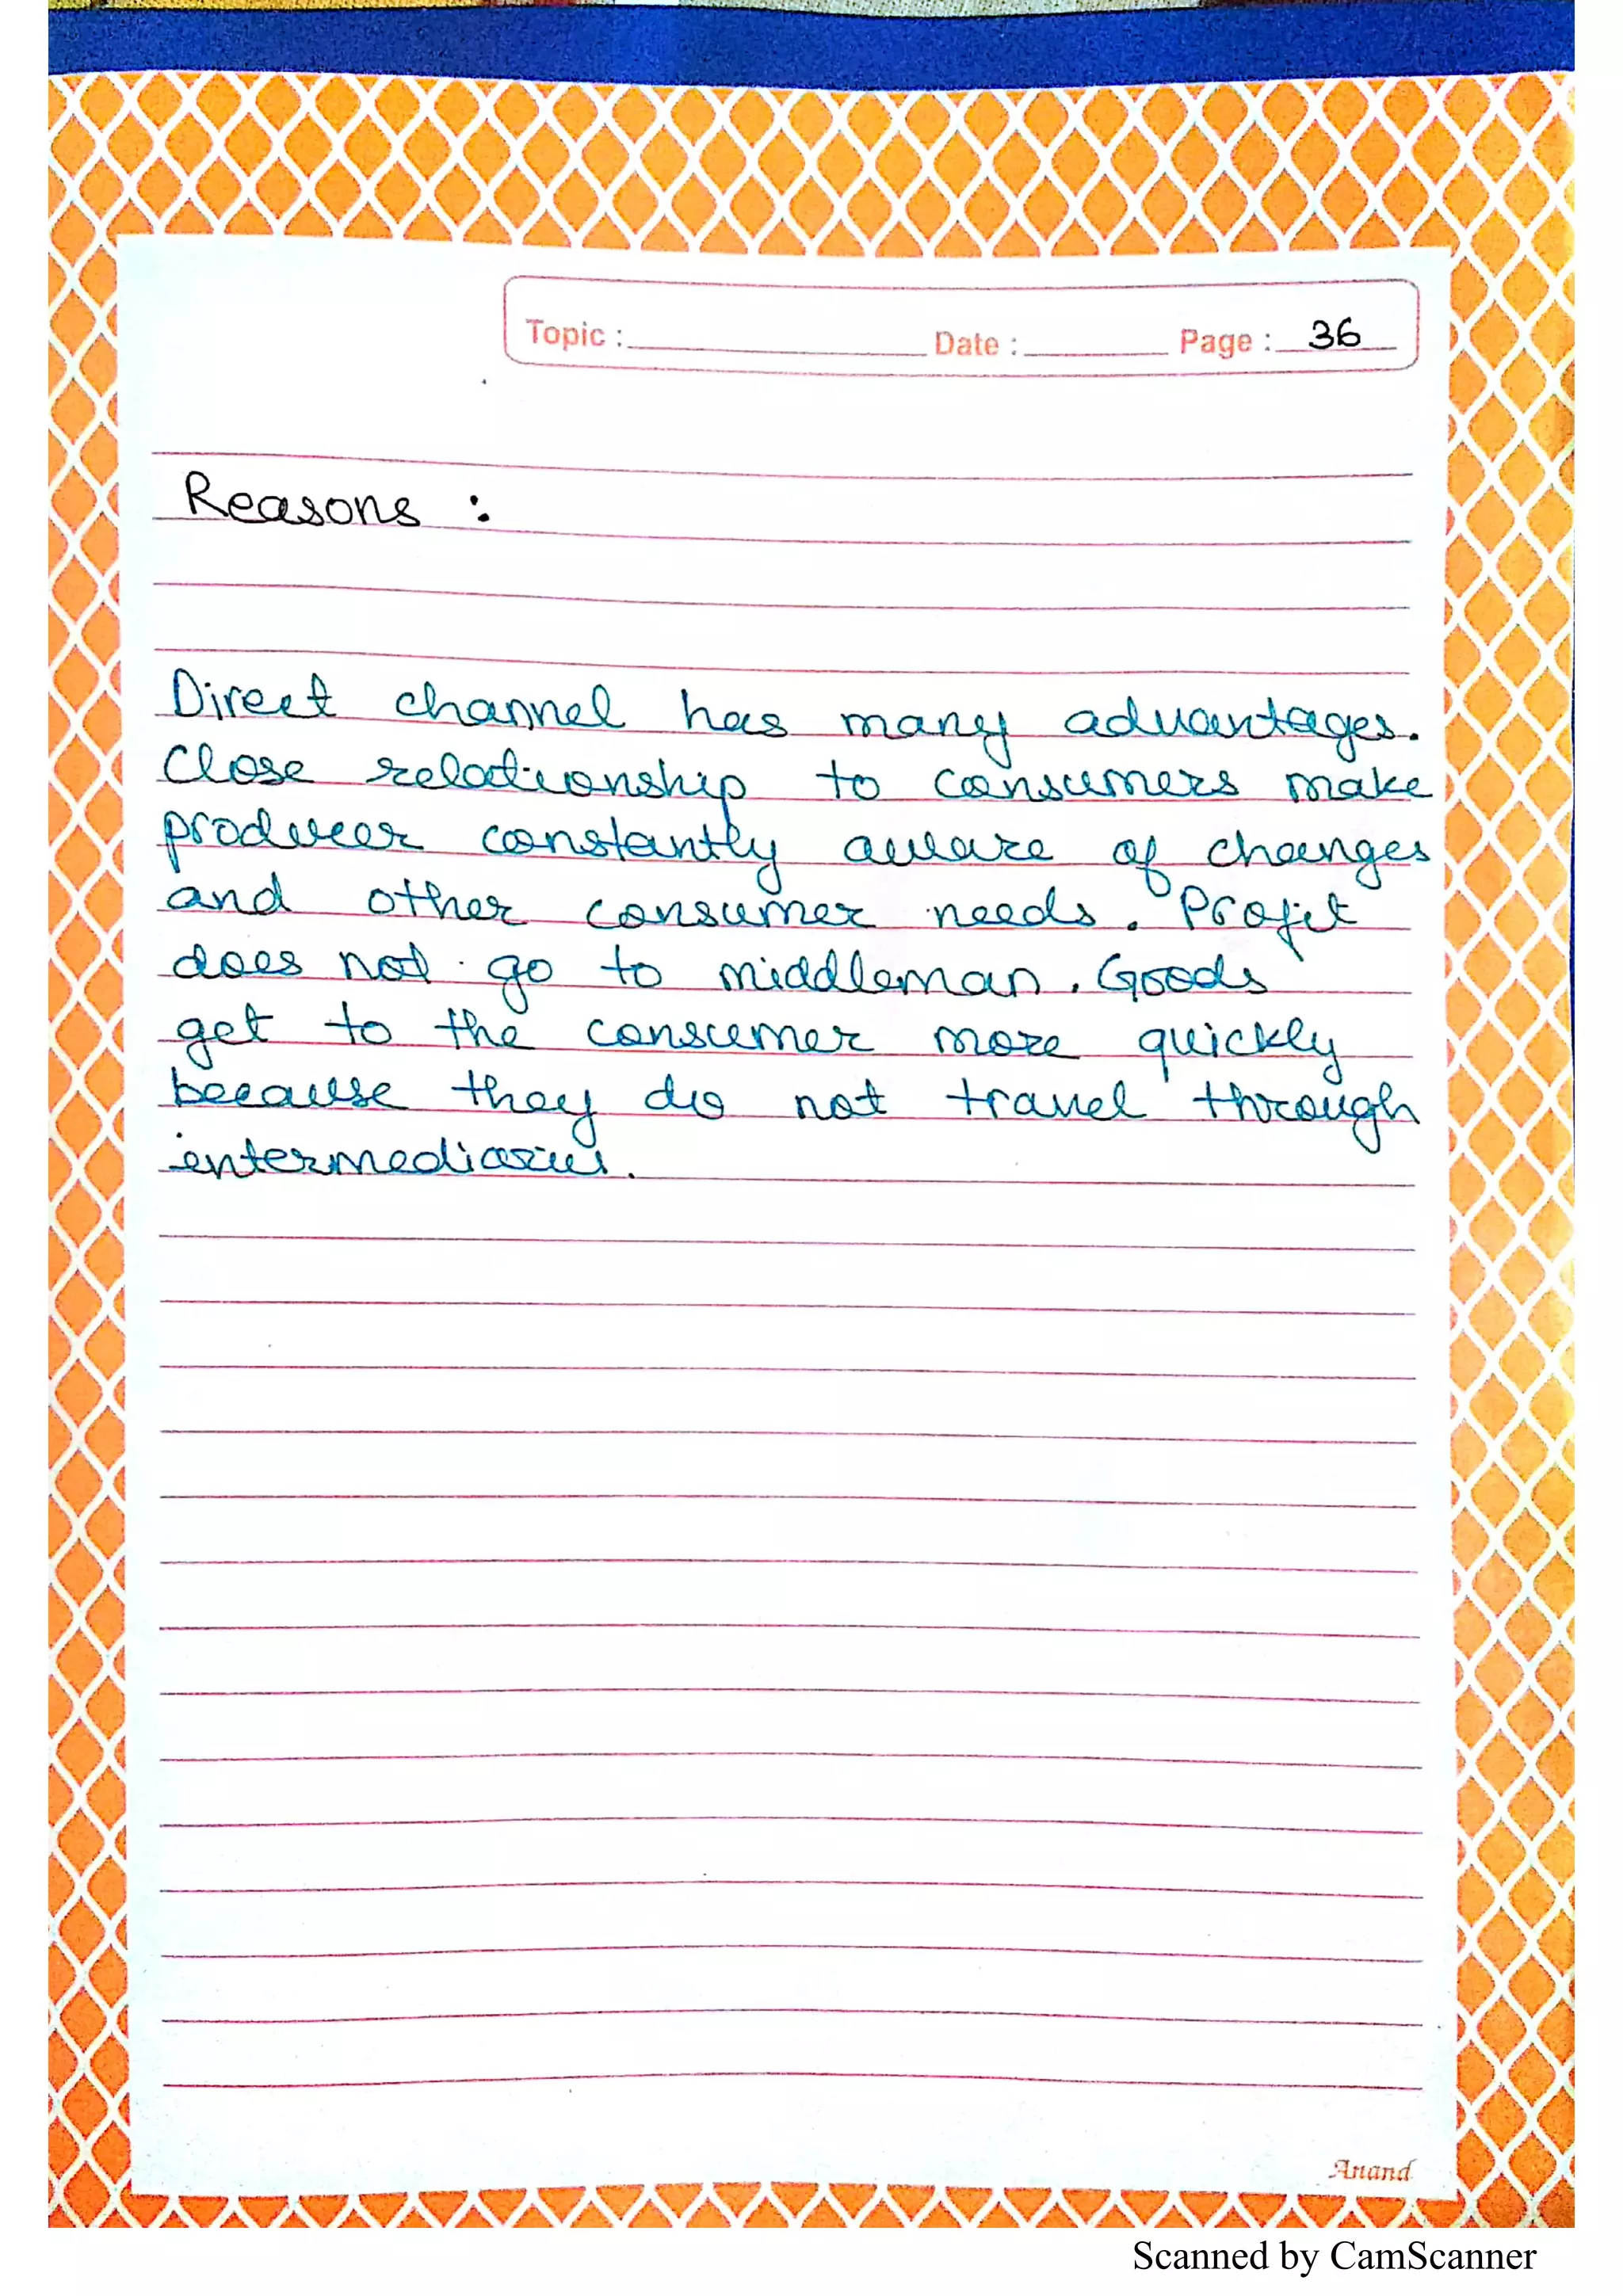 Topic : Date : Page : 36
Reasons :
Direct channel has many advantages.
Close relationship to consumers make
producer constantly aware of changes
and other consumer needs. Profit
does not go to middleman. Goods
get to the consumer more quickly
because they do not travel through
intermediaries.
Anand
Scanned by CamScanner